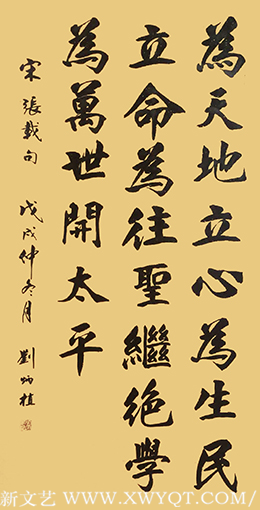 為天地立心為生民
立命為往聖繼絕學
為萬世開太平
宋張載句 戊戌仲冬月 劉炳植
新文艺 WWW.XWYQT.COM/